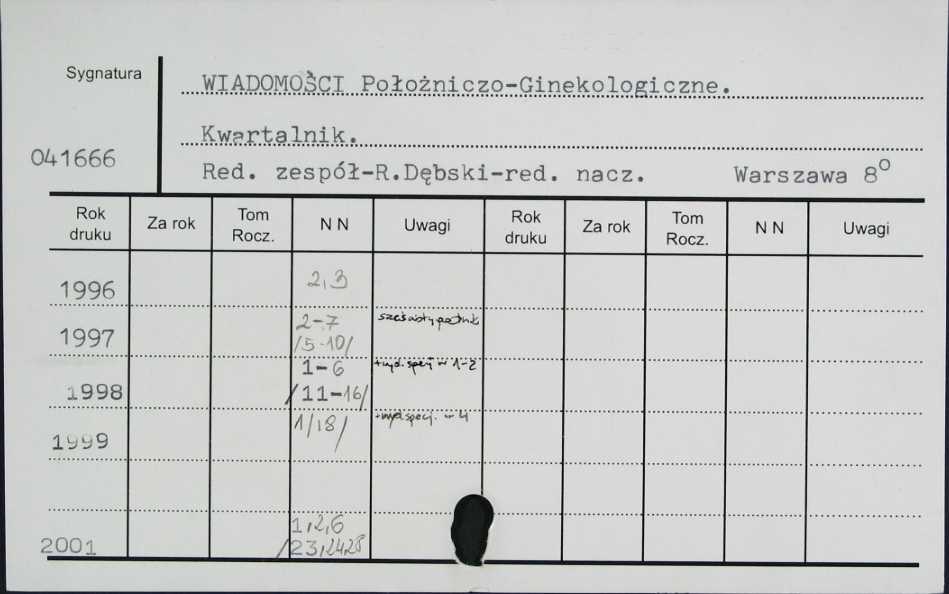 Sygnatura
WIADOMOŚCI Położniczo-Ginekologiczne.
Kwartalnik.
041666
Red. zespół-R.Dębski-red. nacz. Warszawa 8°
Rok druku Za rok Tom Rocz. N N Uwagi Rok druku Za rok Tom Rocz. N N Uwagi
1996 2,3
1997 2-7
/5-10/
1-6 1-2
1998 /11-16/
1999 1/18/ 4
1,2,6
2001 /23,24,28